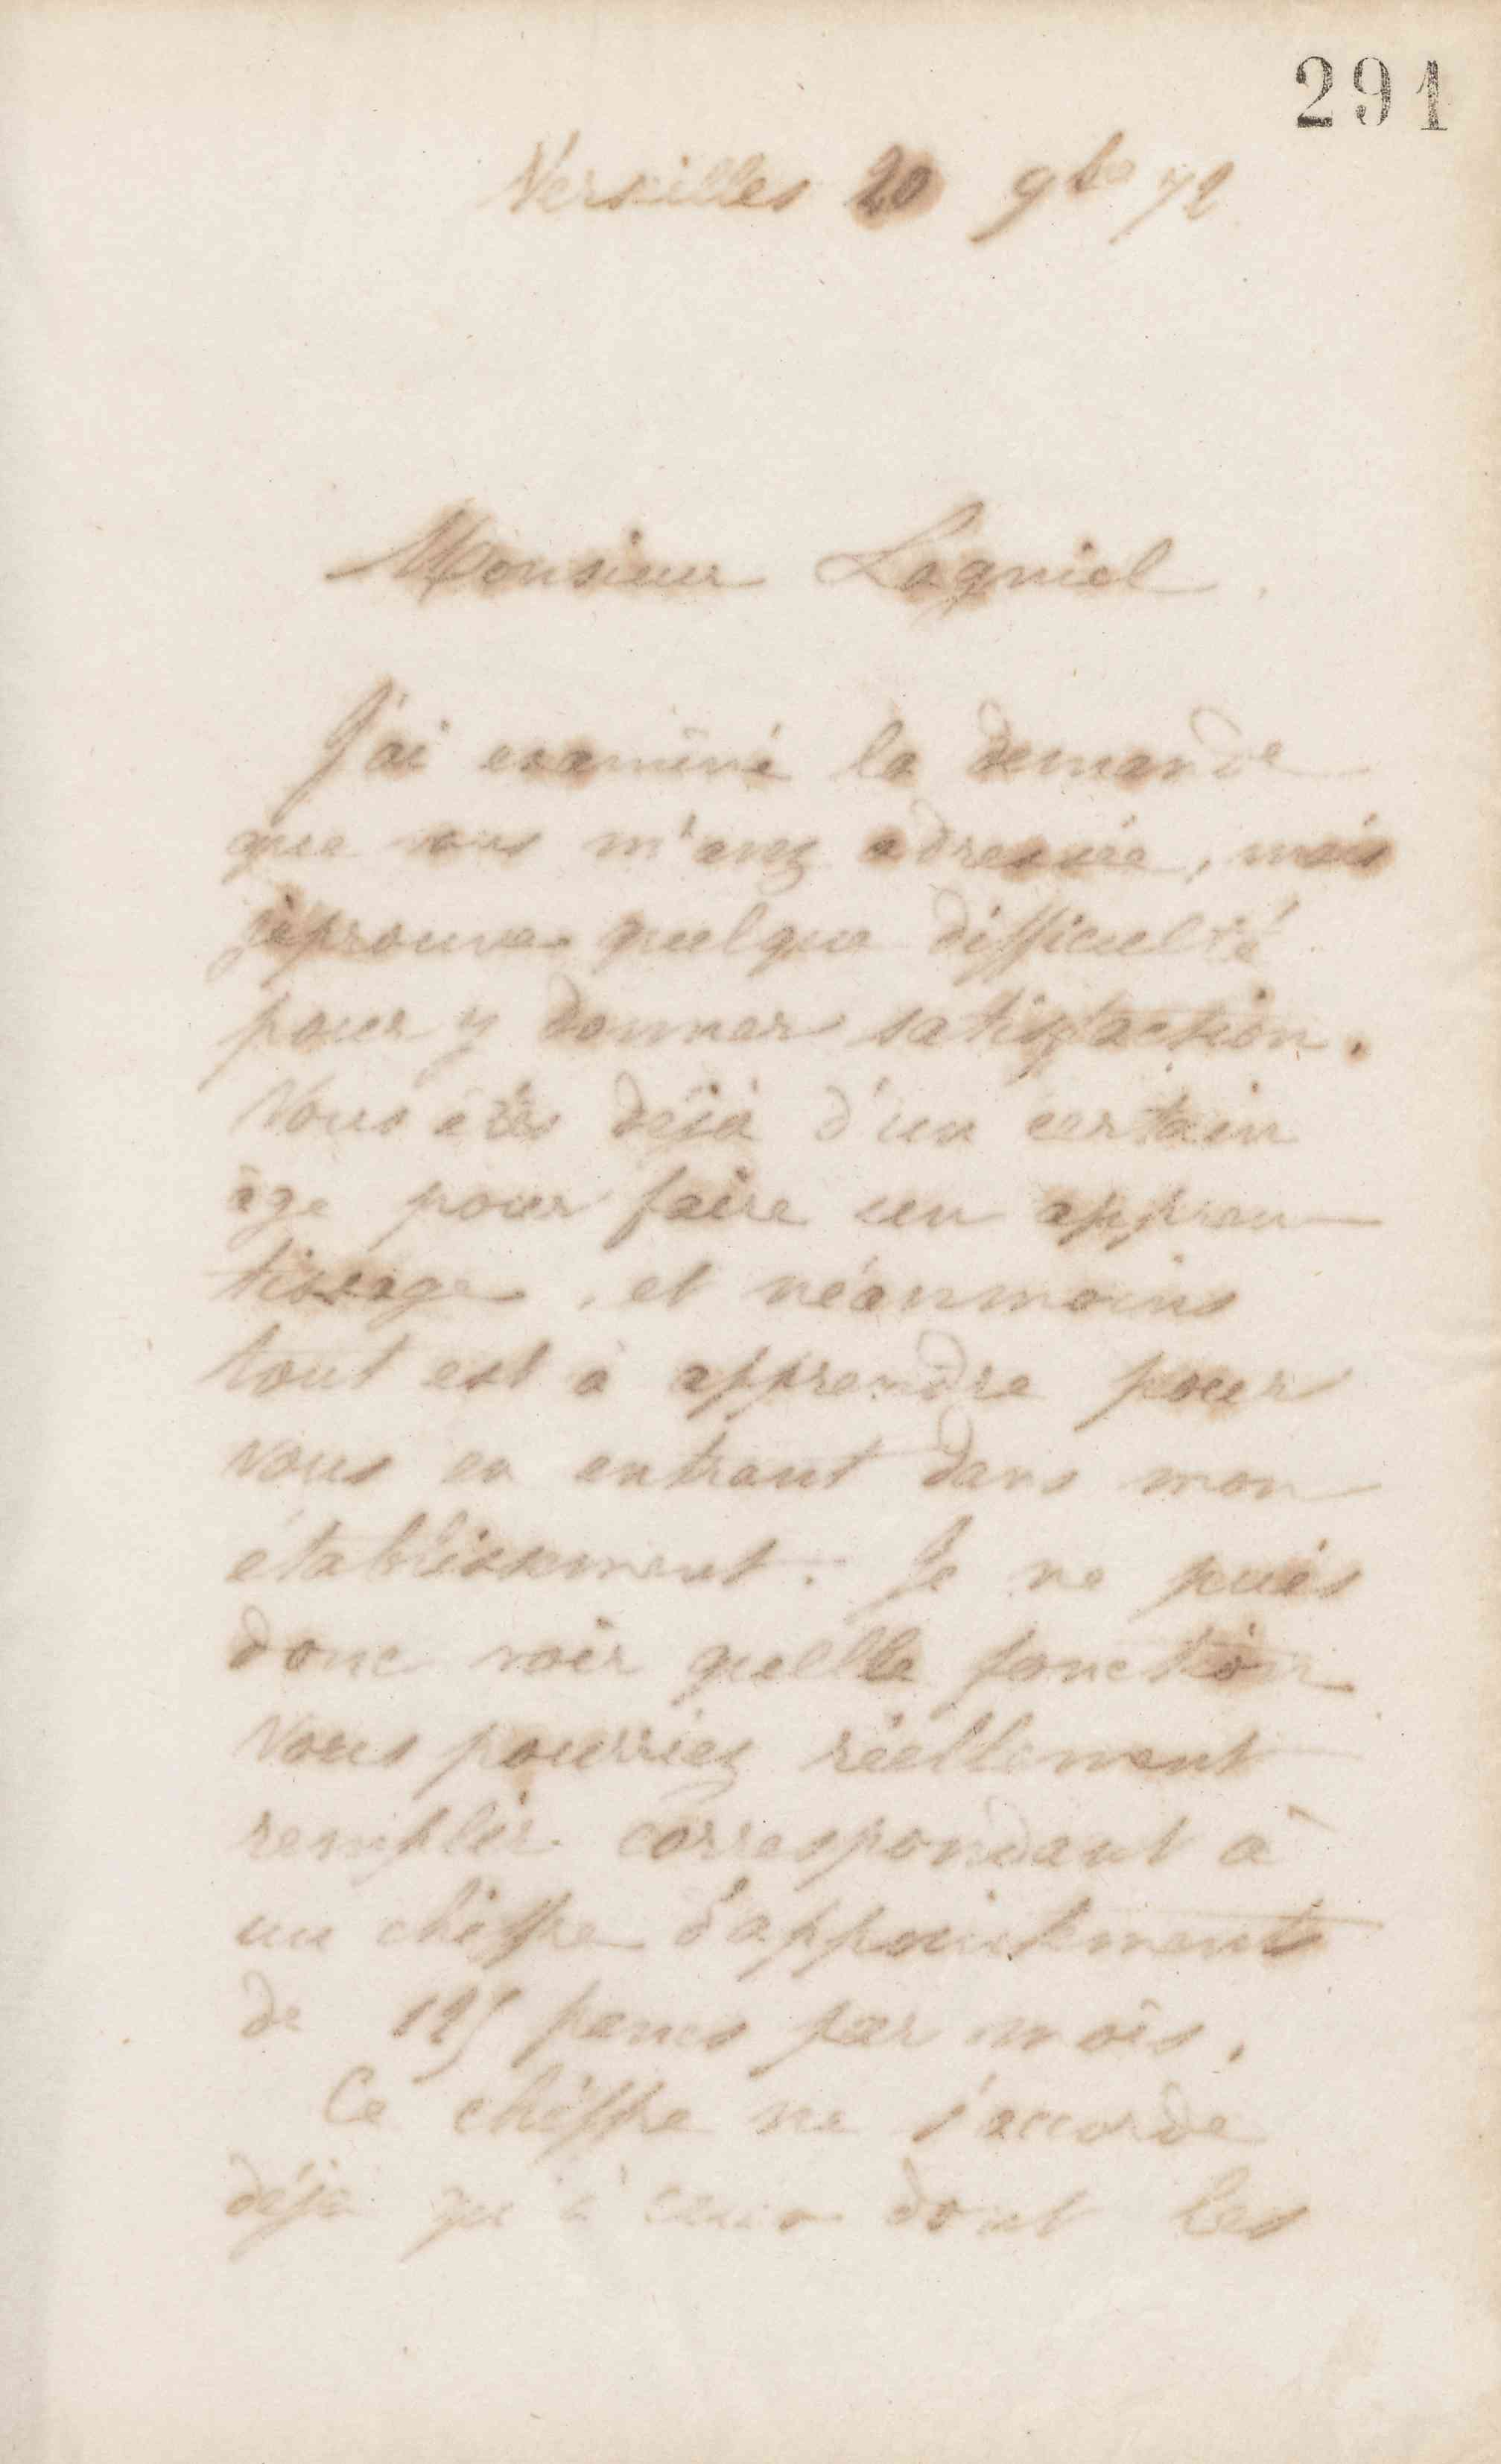 291
Versailles 20 9bre 72
Monsieur Lagniel
J'ai examiné la demande
que vous m'avez adressée, mais
j'éprouve quelque difficulté
pour y donner satisfaction.
Vous êtes déjà d'un certain
âge pour faire un appren-
tissage, et néanmoins
tout est à apprendre pour
vous en entrant dans mon
établissement. Je ne puis
donc voir quelle fonction
vous pourriez réellement
remplir correspondant à
un chiffre d'appointements
de 125 francs par mois.
Ce chiffre ne s'accorde
déjà qu'à ceux dont les